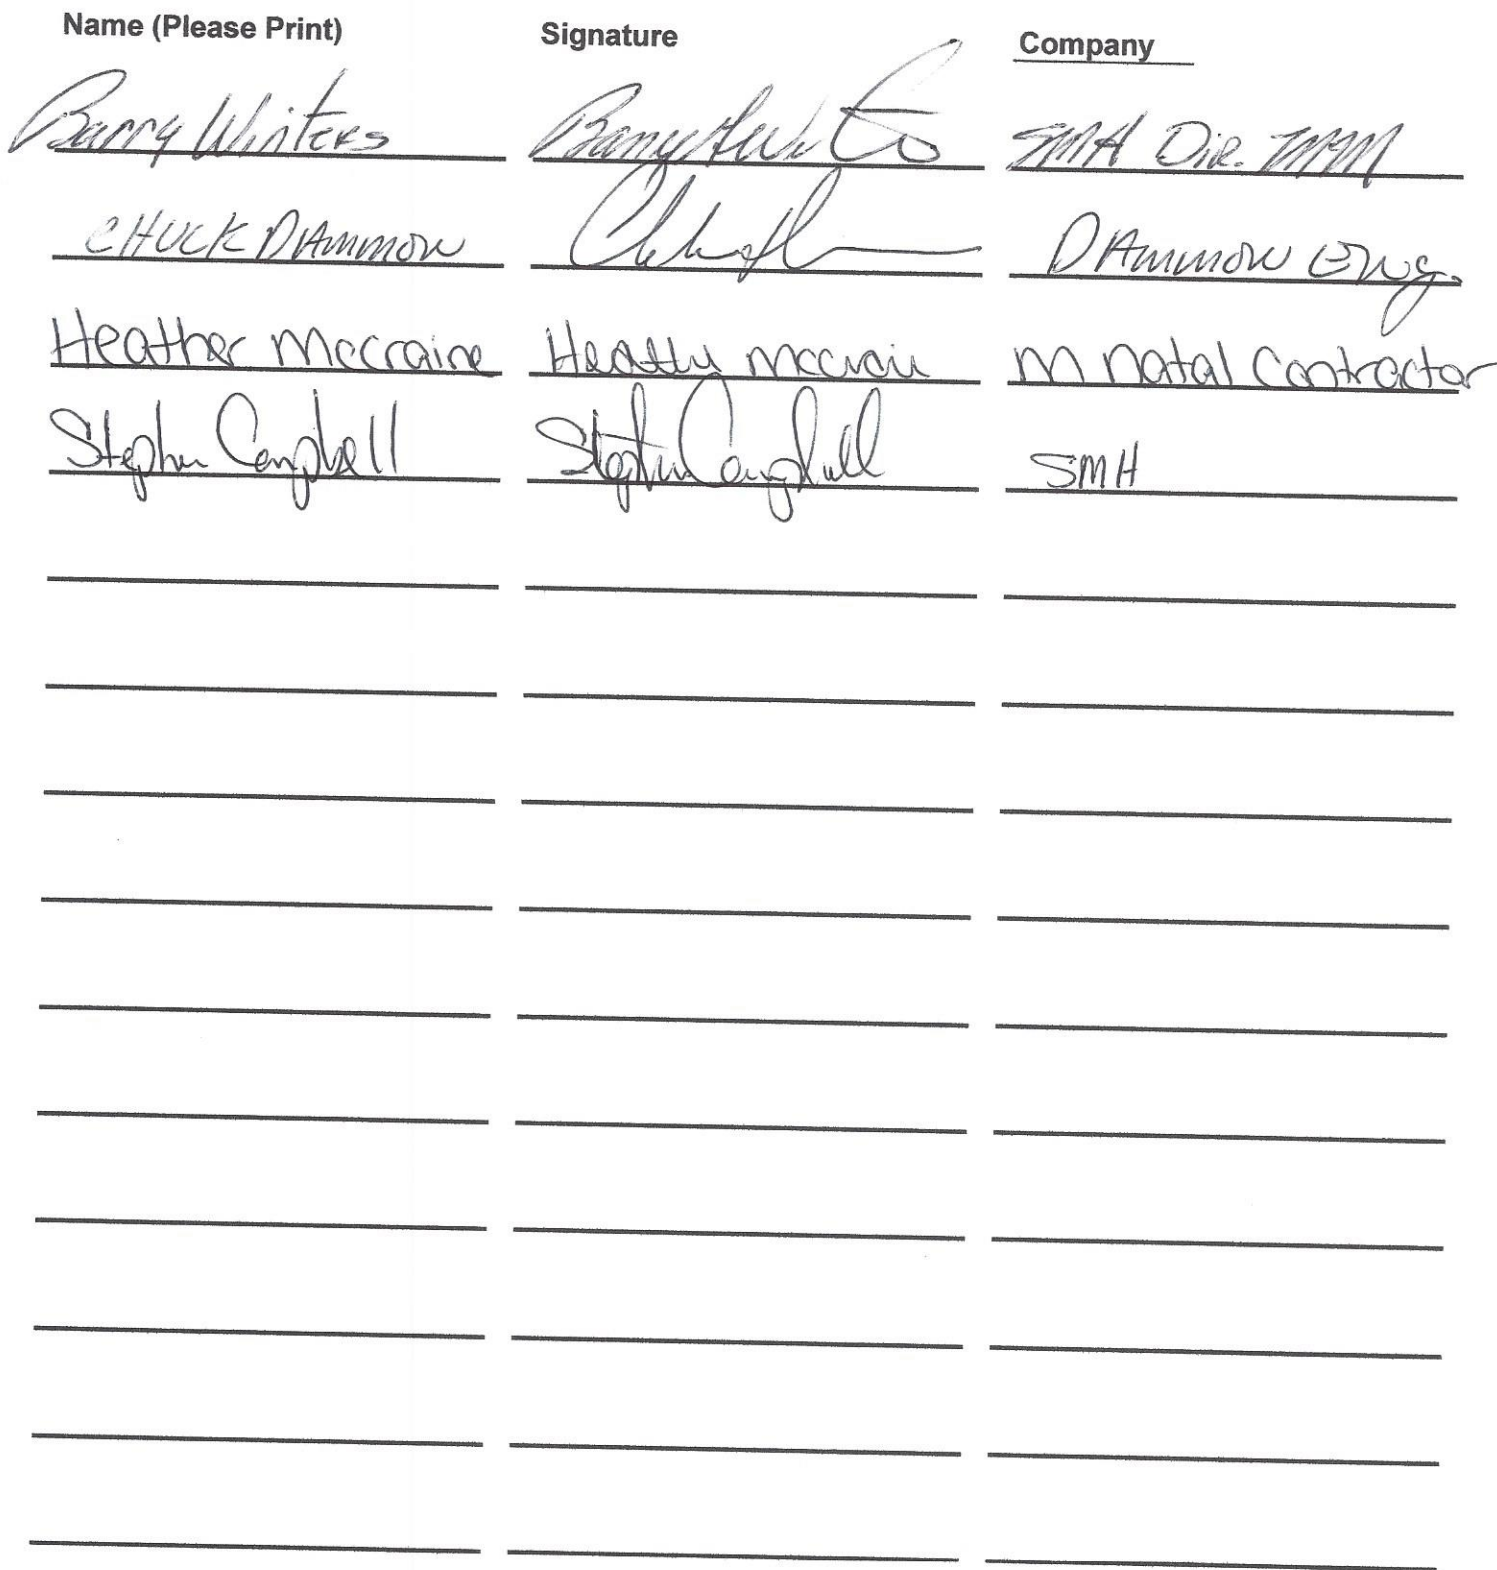 Name (Please Print) Signature Company
Barry Winters SMH Dir. MMM
CHUCK DIAMMOND DIAMMOND Eng.
Heather Mccraine Heather mccraine M Natal Contractor
Stephen Campbell Stephen Campbell SMH